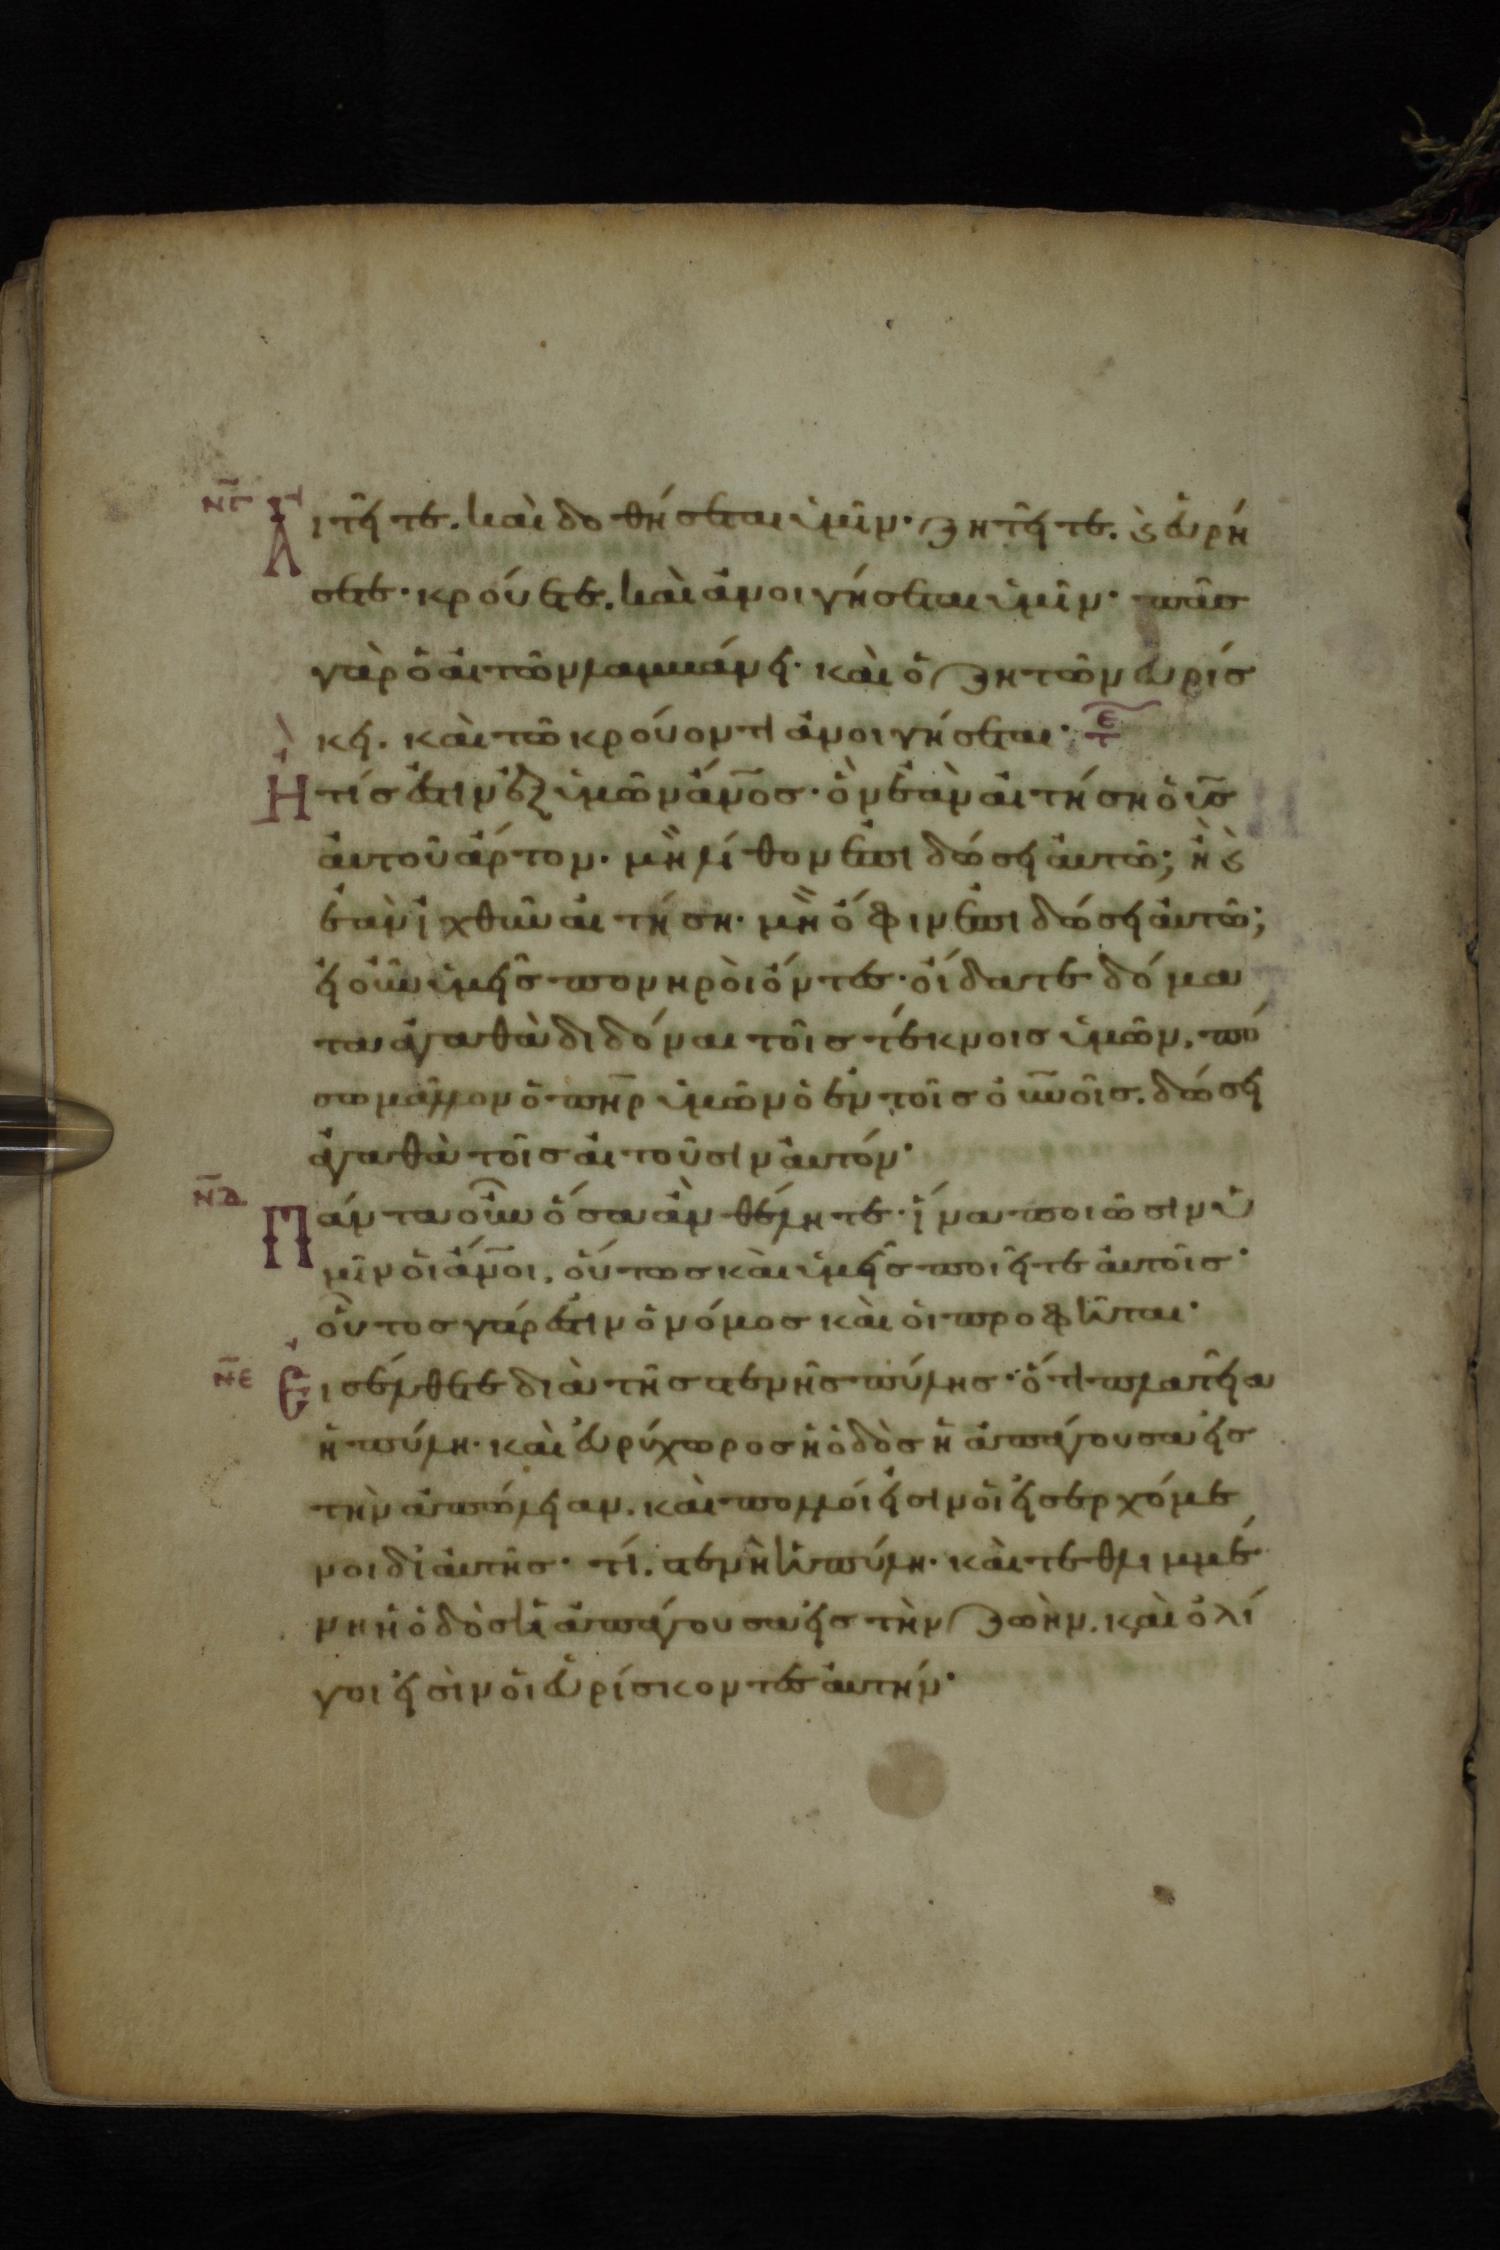 νγ Αἰτεῖτε. καὶ δοθήσεται ὑμῖν· ζητεῖτε. ϗ εὑρή
σετε· κρούετε. καὶ ἀνοιγήσεται ὑμῖν· πᾶσ
γὰρ ὁ αἰτῶν λαμβάνει· καὶ ὁ ζητῶν εὑρίσ
κει. καὶ τῶ κρούοντι ἀνοιγήσεται· τε
Ἢ τίς ἐστιν ἐξ ὑμῶν ἄνος· ὃν ἐὰν αἰτήση ὁ υσ
αὐτοῦ ἄρτον. μὴ λίθον ἐπιδώσει αὐτῶ; ἢ ϗ
ἐὰν ἰχθῦν αἰτήση. μὴ ὄφιν ἐπιδώσει αὐτῶ;
εἰ οὖν ὑμεῖσ πονηροὶ ὄντες· οἴδατε δόμα
τα ἀγαθὰ διδόναι τοῖσ τέκνοισ ὑμῶν, πό
σω μᾶλλον ὁ πηρ ὑμῶν ὁ ἐν τοῖσ οὐνοῖσ. δώσει
ἀγαθὰ τοῖσ αἰτοῦσιν αὐτόν·
νδ Πάντα οὖν ὅσα ἂν θέλητε· ἵνα ποιῶσιν ὑ
μῖν οἱ ἄνοι, οὕτωσ καὶ ὑμεῖσ ποιεῖτε αὐτοῖσ·
οὗτοσ γάρ ἐστιν ὁ νόμοσ καὶ οἱ προφῆται·
νε Εἰσέλθετε διὰ τῆσ στενῆσ πύλησ· ὅτι πλατεῖα
ἡ πύλη· καὶ εὐρύχωροσ ἡ ὁδὸσ ἡ ἀπάγουσα εἰσ
τὴν ἀπώλειαν. καὶ πολλοί εἰσιν οἱ εἰσερχόμε
νοι δι αὐτῆσ· τί. στενὴ ἡ πύλη. καὶ τεθλιμμέ
νη ἡ ὁδὸσ ἡ ἀπάγουσα εἰσ τὴν ζωὴν. καὶ ὀλί
γοι εἰσὶν οἱ εὑρίσκοντεσ αὐτήν·